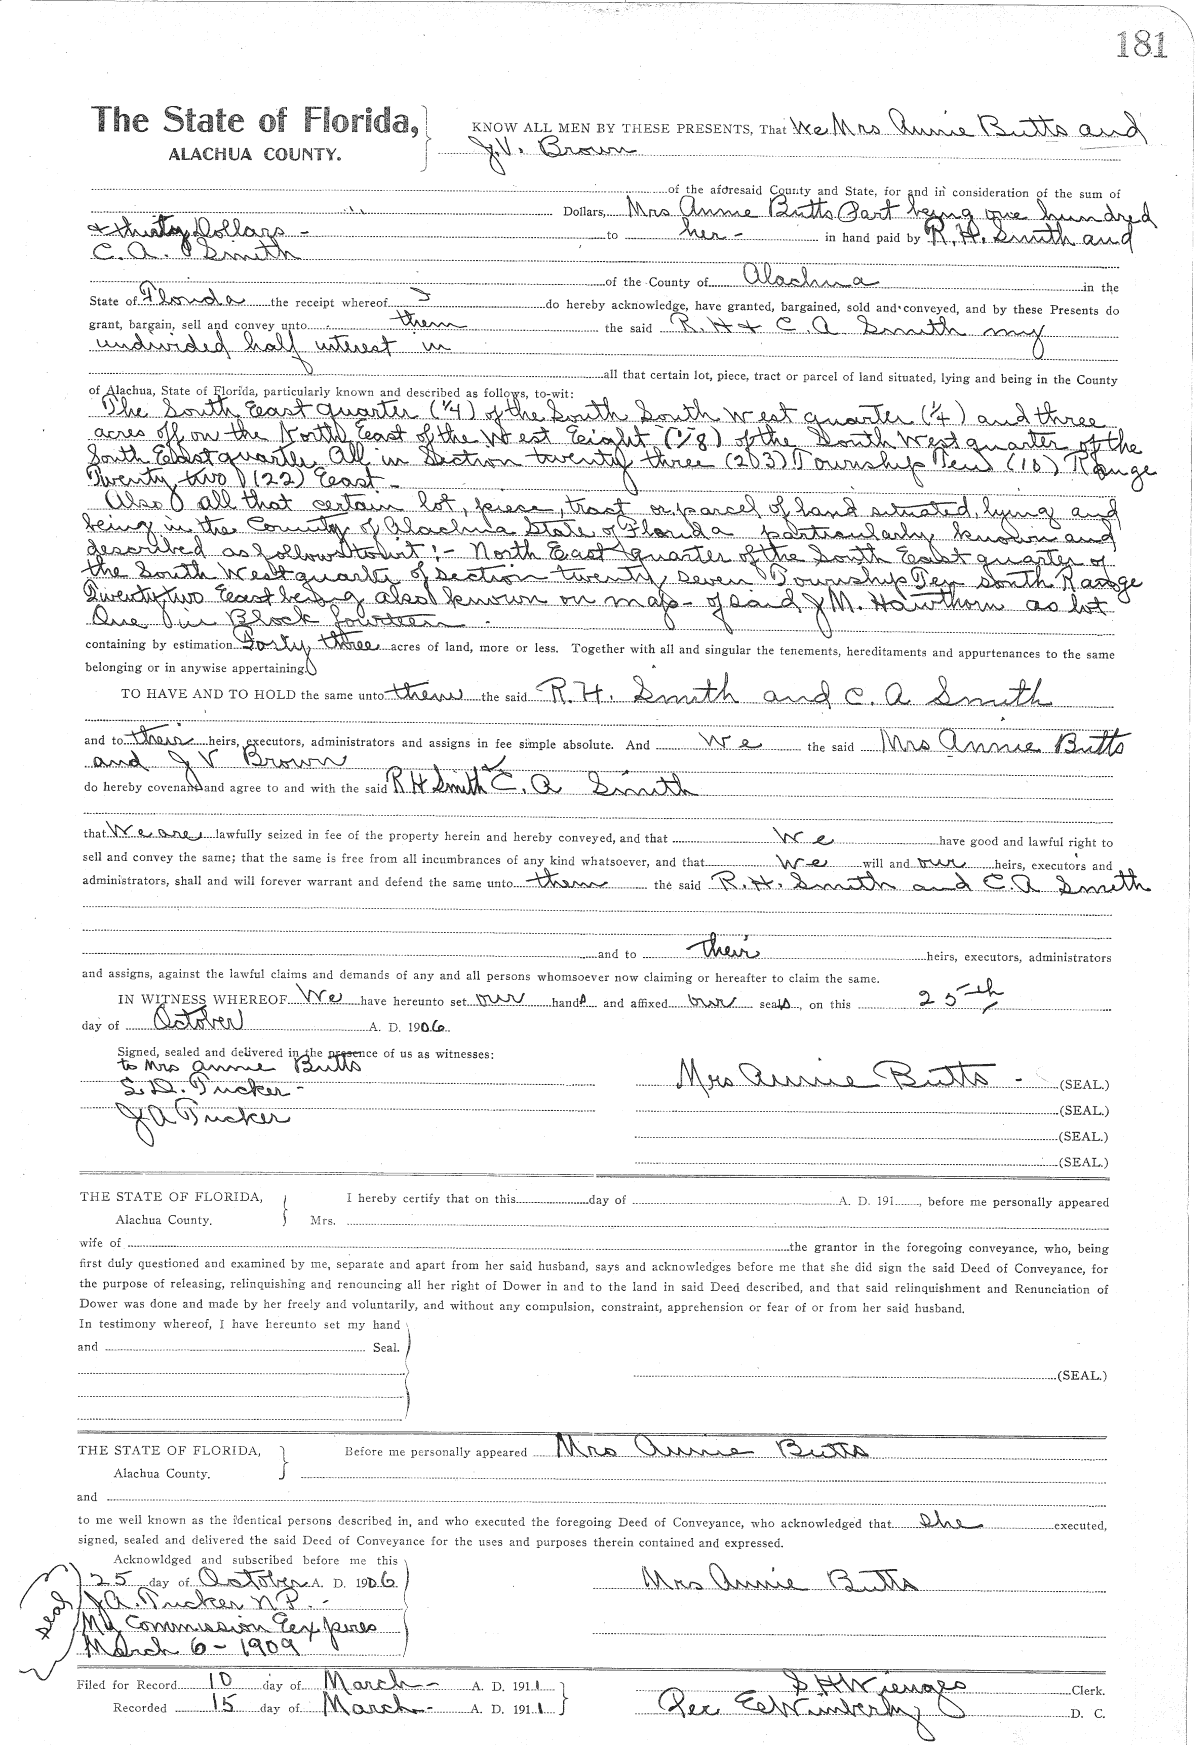 181
The State of Florida,
ALACHUA COUNTY.
KNOW ALL MEN BY THESE PRESENTS, That We Mrs Annie Butts and
J.V. Brown
of the aforesaid County and State, for and in consideration of the sum of
Dollars, Mrs Annie Butts Part being one hundred
& thirty Dollars - to her - in hand paid by R.H. Smith and
C.A. Smith
of the County of Alachua in the
State of Florida the receipt whereof I do hereby acknowledge, have granted, bargained, sold and conveyed, and by these Presents do
grant, bargain, sell and convey unto them the said R.H & C.A Smith my
undivided half interest in
all that certain lot, piece, tract or parcel of land situated, lying and being in the County
of Alachua, State of Florida, particularly known and described as follows, to-wit:
The South East quarter (1/4) of the South South West quarter (1/4) and three
acres off on the North East of the West Eight (1/8) of the South West quarter of the
South East quarter All in Section twenty three (203) Township Ten (10) Range
Twenty two (22) East -
Also all that certain lot, piece, tract or parcel of land situated, lying and
being in the County of Alachua State of Florida particularly known and
described as follows towit :- North East quarter of the South East quarter of
the South West quarter of section twenty seven Township Ten south Range
Twenty two East being also known on map - of said J M. Hawthorn as lot
One in Block fourteen -
containing by estimation Forty three acres of land, more or less. Together with all and singular the tenements, hereditaments and appurtenances to the same
belonging or in anywise appertaining.
TO HAVE AND TO HOLD the same unto them the said R.H. Smith and C. A Smith
and to their heirs, executors, administrators and assigns in fee simple absolute. And We the said Mrs Annie Butts
and J V Brown
do hereby covenant and agree to and with the said R H Smith & C. A Smith
that We are lawfully seized in fee of the property herein and hereby conveyed, and that We have good and lawful right to
sell and convey the same; that the same is free from all incumbrances of any kind whatsoever, and that We will and our heirs, executors and
administrators, shall and will forever warrant and defend the same unto them the said R.H. Smith and C.A Smith
and to their heirs, executors, administrators
and assigns, against the lawful claims and demands of any and all persons whomsoever now claiming or hereafter to claim the same.
IN WITNESS WHEREOF We have hereunto set our hands and affixed our seals, on this 25th
day of October A. D. 1906.
Signed, sealed and delivered in the presence of us as witnesses:
to Mrs Annie Butts
S.D. Tucker -
J A Tucker
Mrs Annie Butts - (SEAL.)
(SEAL.)
(SEAL.)
(SEAL.)
THE STATE OF FLORIDA,
Alachua County.
I hereby certify that on this day of A. D. 191 , before me personally appeared
Mrs.
wife of the grantor in the foregoing conveyance, who, being
first duly questioned and examined by me, separate and apart from her said husband, says and acknowledges before me that she did sign the said Deed of Conveyance, for
the purpose of releasing, relinquishing and renouncing all her right of Dower in and to the land in said Deed described, and that said relinquishment and Renunciation of
Dower was done and made by her freely and voluntarily, and without any compulsion, constraint, apprehension or fear of or from her said husband.
In testimony whereof, I have hereunto set my hand
and Seal.
(SEAL.)
THE STATE OF FLORIDA,
Alachua County.
Before me personally appeared Mrs Annie Butts
and
to me well known as the identical persons described in, and who executed the foregoing Deed of Conveyance, who acknowledged that she executed,
signed, sealed and delivered the said Deed of Conveyance for the uses and purposes therein contained and expressed.
Acknowldged and subscribed before me this
25 day of October A. D. 1906
J A. Tucker N.P. -
My Commission Eexpires
March 6 - 1909
Seal
Mrs Annie Butts
Filed for Record 10 day of March - A. D. 1911
Recorded 15 day of March - A. D. 1911
S H Wienges Clerk.
Per E E Wimberly D. C.